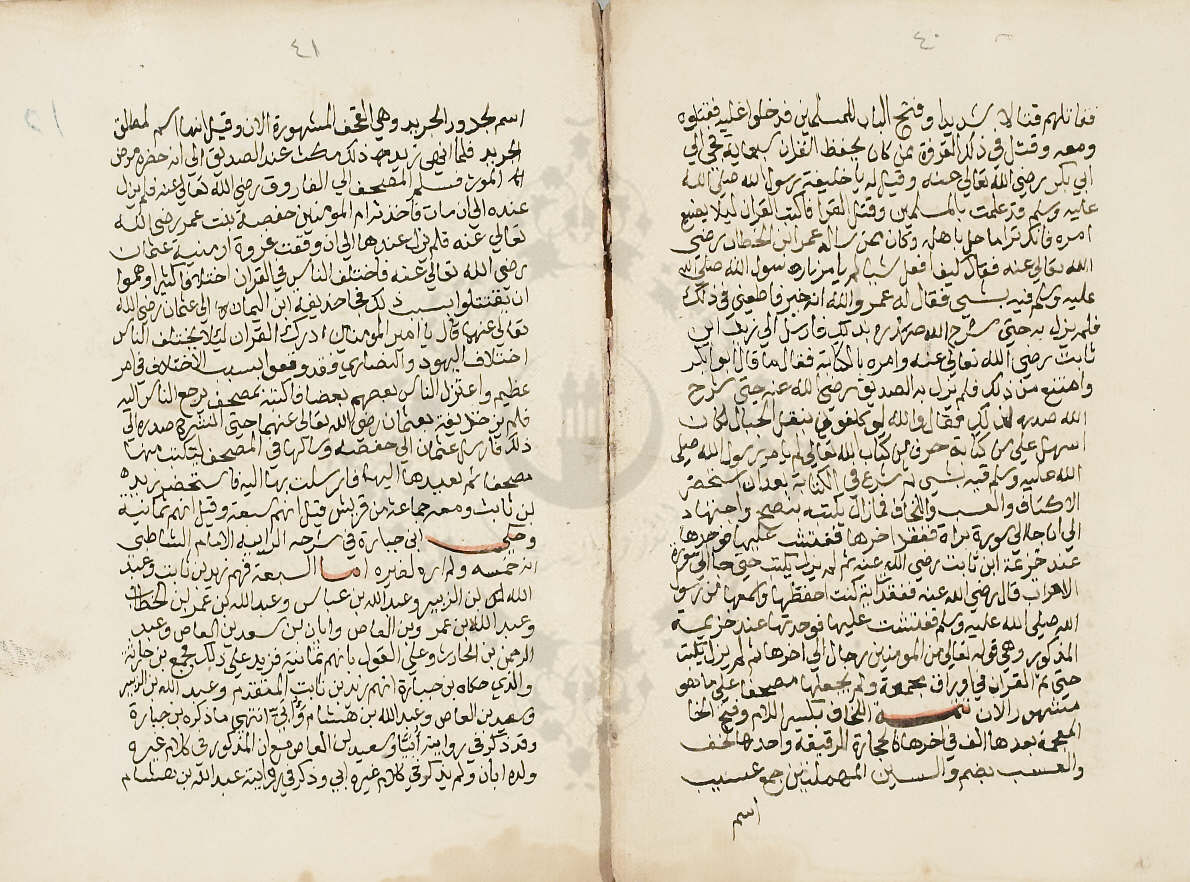 ٤٠
فقاتلهم قتالا شديدا وفتح الباب للمسلمين فدخلوا عليه فقتلوه
ومعه وقتل في ذلك الغزوة ممن كان يحفظ القران سبعماية فجي الي
ابي بكر رضي الله تعالي عنه وقيل له يا خليفة رسول الله صلي الله
عليه وسلم قد علمت بالمسلمين وقتل القرا فاكتب القران ليلا يضيع
امره فانكر تراما حل باهله وكان ممن ساله عمر ابن الخطاب رضي
الله تعالي عنه فقال كيف افعل شيا لم يامر به رسول الله صلي الله
عليه وسلم فيه بشي فقال له عمر والله انه خير فاطعني في ذلك
فلم يزل به حتي شرح الله صدره بذلك فارسل الي زيد ابن
ثابت رضي الله تعالي عنه وامره بالكتابة فقال ما قال ابو بكر
وامتنع من ذلك فلم يزل به الصديق رضي الله عنه حتي شرح
الله صدره لذلك فقال والله لو كلفوني بنقل الجبال لكان
اسهل علي من كتابة حرف من كتاب الله تعالي لم يامر رسول الله صلي
الله عليه وسلم فيه بشي ثم شرع في الكتابة بعد ان ستحضر
الاكتاف والعسب واللخاف فما زال يكتبه بنصح واجتهاد
الي ان جا الي سورة براة ففقد اخرها ففتشت عليها فوجدها
عند خزيمة ابن ثابت رضي الله عنه ثم لم يزل يكتب حتي جا الي سورة
الاحزاب قال رضي الله عنه ففقد اية كنت احفظها واسمعها من رسول
الله صلي الله عليه وسلم ففتشت عليها فوجدتها عند خزيمة
المذكور وهي قوله تعالي من المومنين رجال الي اخرها ثم لم يزل يكتب
حتي تم القران في اوراق مجموعة ولم يجعلها مصحفا علي ما هو
مشهور الان تتمة اللخاف بكسر اللام وفتح الخا
المعجمة بعدها الف في اخرها فا الحجارة الرقيقة واحدها لخف
والعسب بضم والسين المهملتين جمع عسيب
اسم
٤١
اسم لجدور الجريد وهي القحف المشهورة الان وقيل انها اسم لمطلق
الجريد فلما انتهي زيد من ذلك مكث عند الصديق الي انه حضره مرض
الموت فسلم المصحف الي الفاروق رضي الله تعالي عنه فلم يزل
عنده الي ان مات فاخذته ام المومنين حفصة بنت عمر رضي الله
تعالي عنه فلم يزل عندها الي ان وقعت غزوة ارمنية عثمان
رضي الله تعالي عنه فاختلف الناس في القران اختلافا كثيرا وهموا
ان يقتتلوا بسبب ذلك فجا حذيفة ابن اليمان الي عثمان رضي الله
تعالي عنهما قال يا امير المومنين ادرك القران ليلا يختلف الناس
اختلاف اليهود والنصاري فقد وقعوا بسبب الاختلاف في امر
عظيم واعتزل الناس بعضهم بعضا فاكتبه بمصحف يرجع الناس اليه
فلم يزل حذيفة بعثمان رضي الله تعالي عنهما حتي انشرح صدره الي
ذلك فارسل عثمان الي حفصة وسالها في المصحف ليكتب منها
مصحفا ثم يعيدها اليها فارسلت بها اليه فاستحضر زيد
بن ثابت ومعه جماعة من قريش قيل انهم سبعة وقيل انهم ثمانية
وحكي ابن جبارة في شرحه الراية الامام الشاطبي
انه خمسة ولم اره لغيره اما السبعة فهم زيد بن ثابت وعبد
الله بن الزبير وعبد الله بن عباس وعبد الله بن عمر بن الخطاب
وعبد الله بن عمرو بن العاص وابان بن سعد بن العاص وعبد
الرحمن بن الحارث وعلي القول بانهم ثمانية فزيد علي ذلك مجمع بن حارثة
والذي حكاه بن جبارة انهم زيد بن ثابت المتقدم وعبد الله بن الزبير
وسعد بن العاص وعبد الله بن هشام وابي انتهي ما ذكره بن جبارة
وقد ذكر في رواية سعيد بن العاص مع ان المذكور في كلام غيره
ولده ابان ولم يذكر في كلام غيره ابي وذكر في رواية عبد الله بن هشام